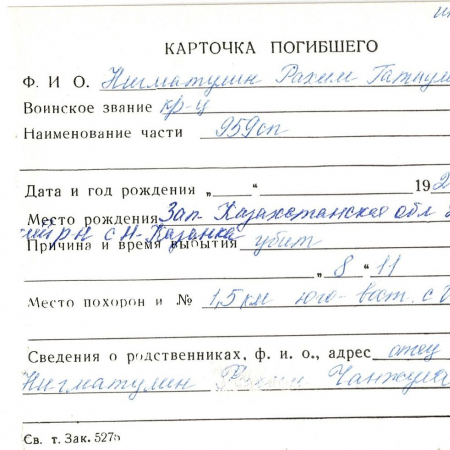 КАРТОЧКА ПОГИБШЕГО
Ф. И О. Нигматулин Рахим
Воинское звание кр-ц
Наименование части 959сп
Дата и год рождения „ “ 192
Место рождения Зап-Казахстанская обл
р-н с Н-Казанка
Причина и время выбытия убит
„ 8 “ 11
Место похорон и № 1,5 км юго-вост. с
Сведения о родственниках, ф. и. о., адрес отец
Нигматулин
Св. т. Зак. 527